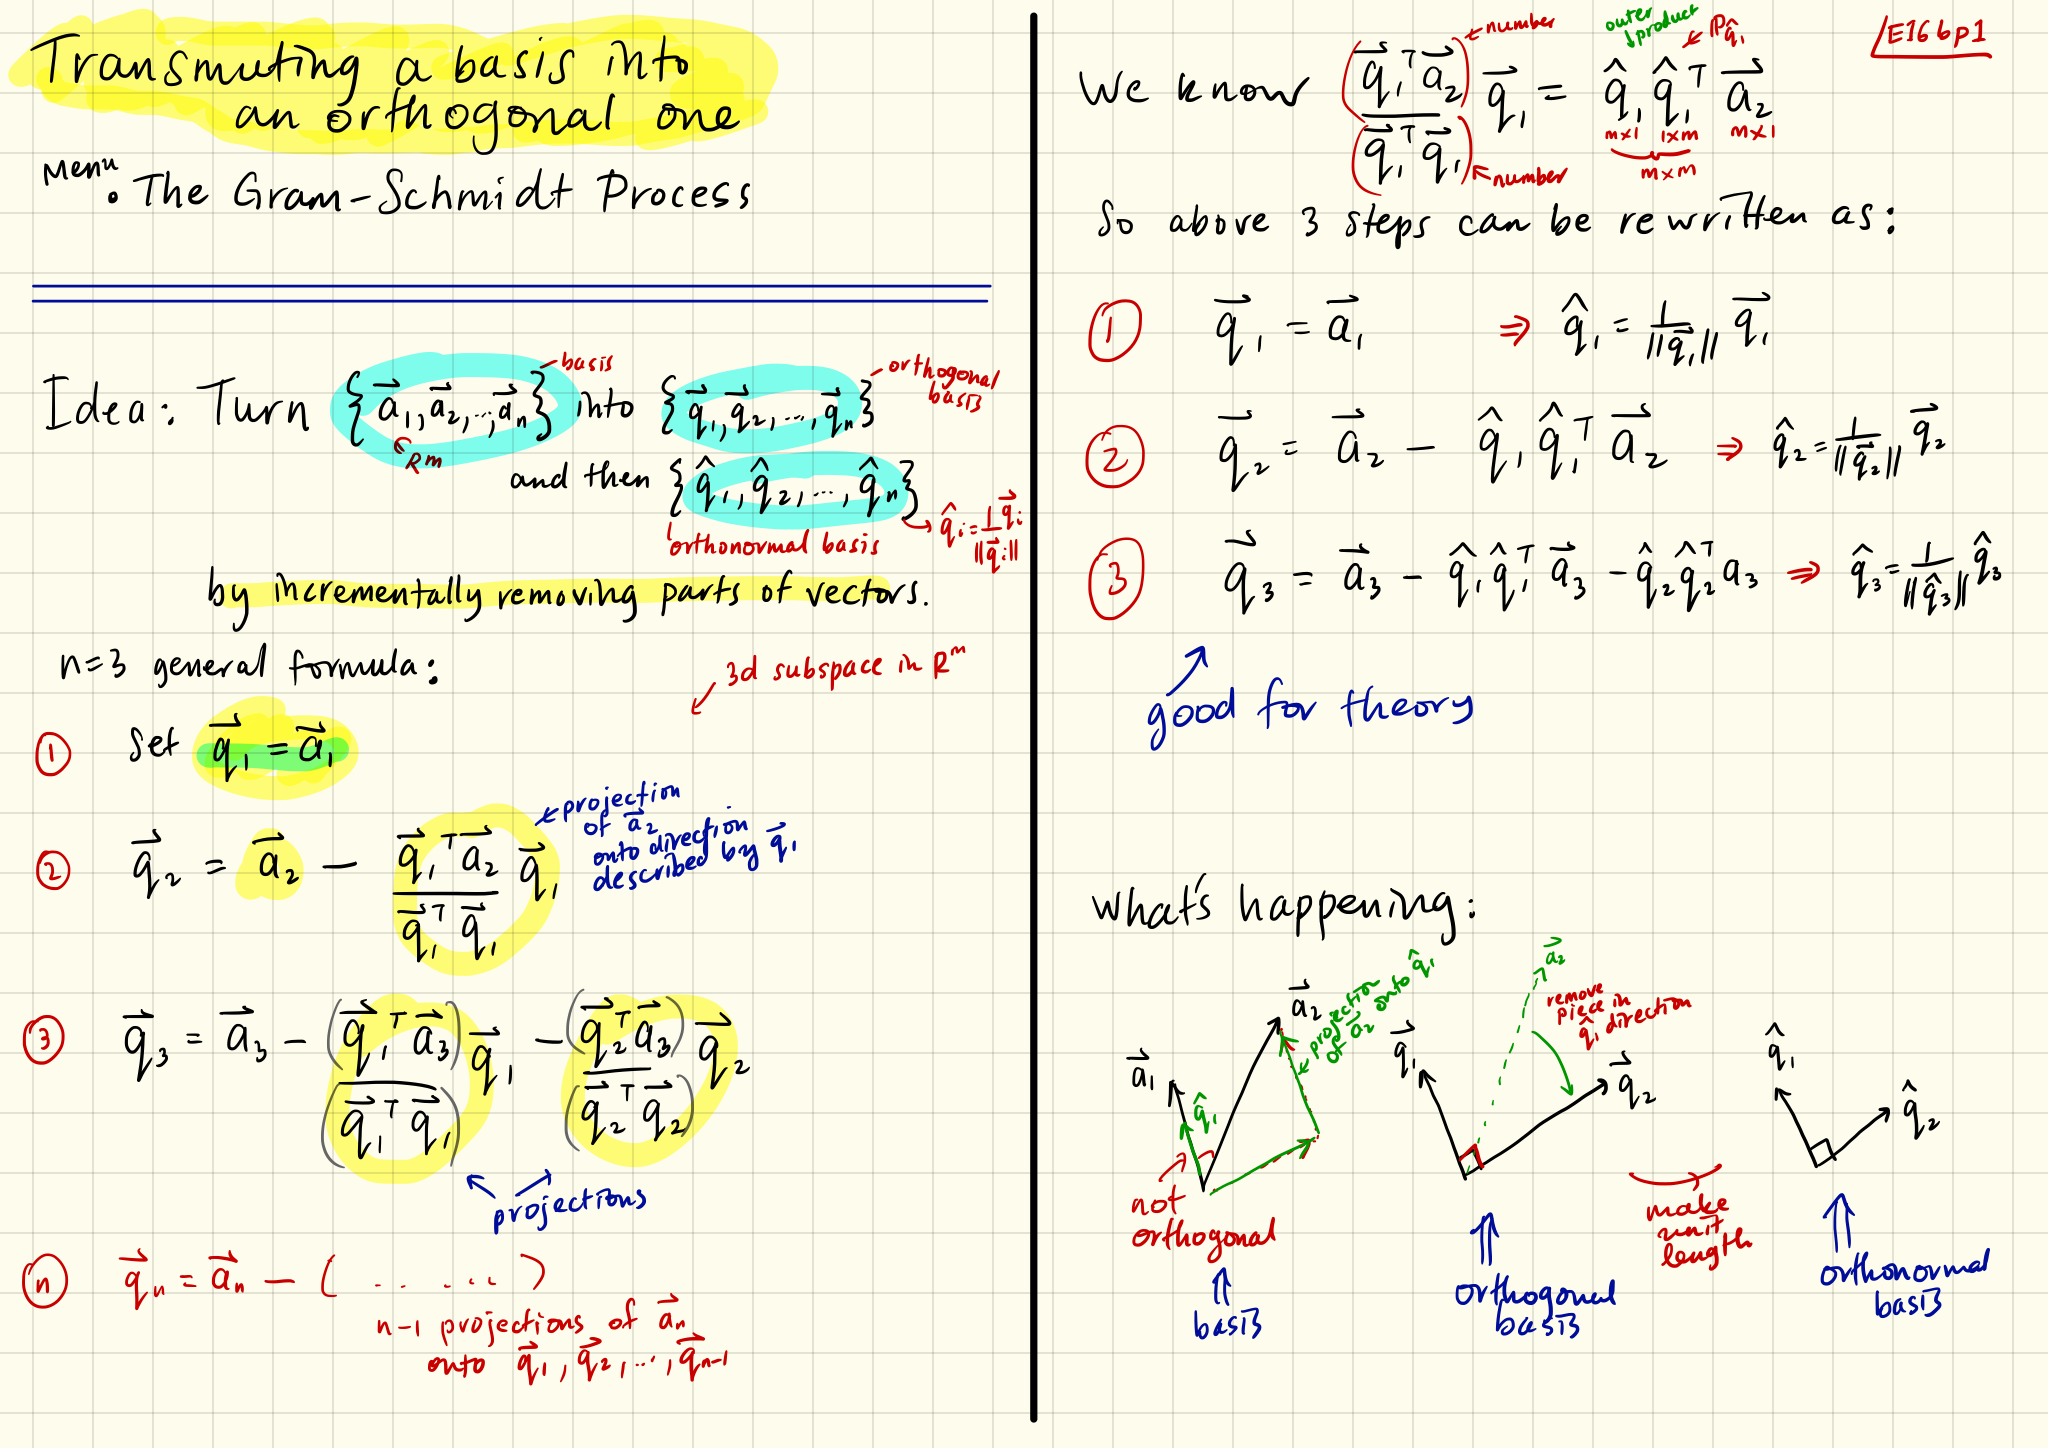 Transmuting a basis into
an orthogonal one
Menu
• The Gram-Schmidt Process
Idea: Turn {a⃗₁, a⃗₂, ..., a⃗ₙ} into {q⃗₁, q⃗₂, ..., q⃗ₙ}
basis
Rᵐ
orthogonal
basis
and then {q̂₁, q̂₂, ..., q̂ₙ}
orthonormal basis
q̂ᵢ = 1/||q⃗ᵢ|| q⃗ᵢ
by incrementally removing parts of vectors.
n=3 general formula:
3d subspace in Rᵐ
① Set q⃗₁ = a⃗₁
② q⃗₂ = a⃗₂ − (q⃗₁ᵀ a⃗₂ / q⃗₁ᵀ q⃗₁) q⃗₁
projection
of a⃗₂
onto direction
described by q⃗₁
③ q⃗₃ = a⃗₃ − (q⃗₁ᵀ a⃗₃)/(q⃗₁ᵀ q⃗₁) q⃗₁ − (q⃗₂ᵀ a⃗₃)/(q⃗₂ᵀ q⃗₂) q⃗₂
projections
ⓝ q⃗ₙ = a⃗ₙ − ( . . . . . )
n-1 projections of a⃗ₙ
onto q⃗₁, q⃗₂, ..., q⃗ₙ₋₁
/E16bp1
We know (q⃗₁ᵀ a⃗₂)/(q⃗₁ᵀ q⃗₁) q⃗₁ = q̂₁ q̂₁ᵀ a⃗₂
number
number
outer
product
P q̂₁
m×1 1×m m×1
m×m
So above 3 steps can be rewritten as:
① q⃗₁ = a⃗₁ ⇒ q̂₁ = 1/||q⃗₁|| q⃗₁
② q⃗₂ = a⃗₂ − q̂₁ q̂₁ᵀ a⃗₂ ⇒ q̂₂ = 1/||q⃗₂|| q⃗₂
③ q⃗₃ = a⃗₃ − q̂₁ q̂₁ᵀ a⃗₃ − q̂₂ q̂₂ᵀ a₃ ⇒ q̂₃ = 1/||q̂₃|| q̂₃
good for theory
What's happening:
a⃗₁
q̂₁
a⃗₂
projection
of a⃗₂ onto q̂₁
not
orthogonal
basis
q⃗₁
a⃗₂
remove
piece in
q̂₁ direction
q⃗₂
orthogonal
basis
make
unit
length
q̂₁
q̂₂
orthonormal
basis